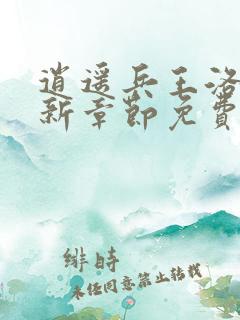 逍遥兵王洛
新章節免費
緋時
未经同意禁止转载